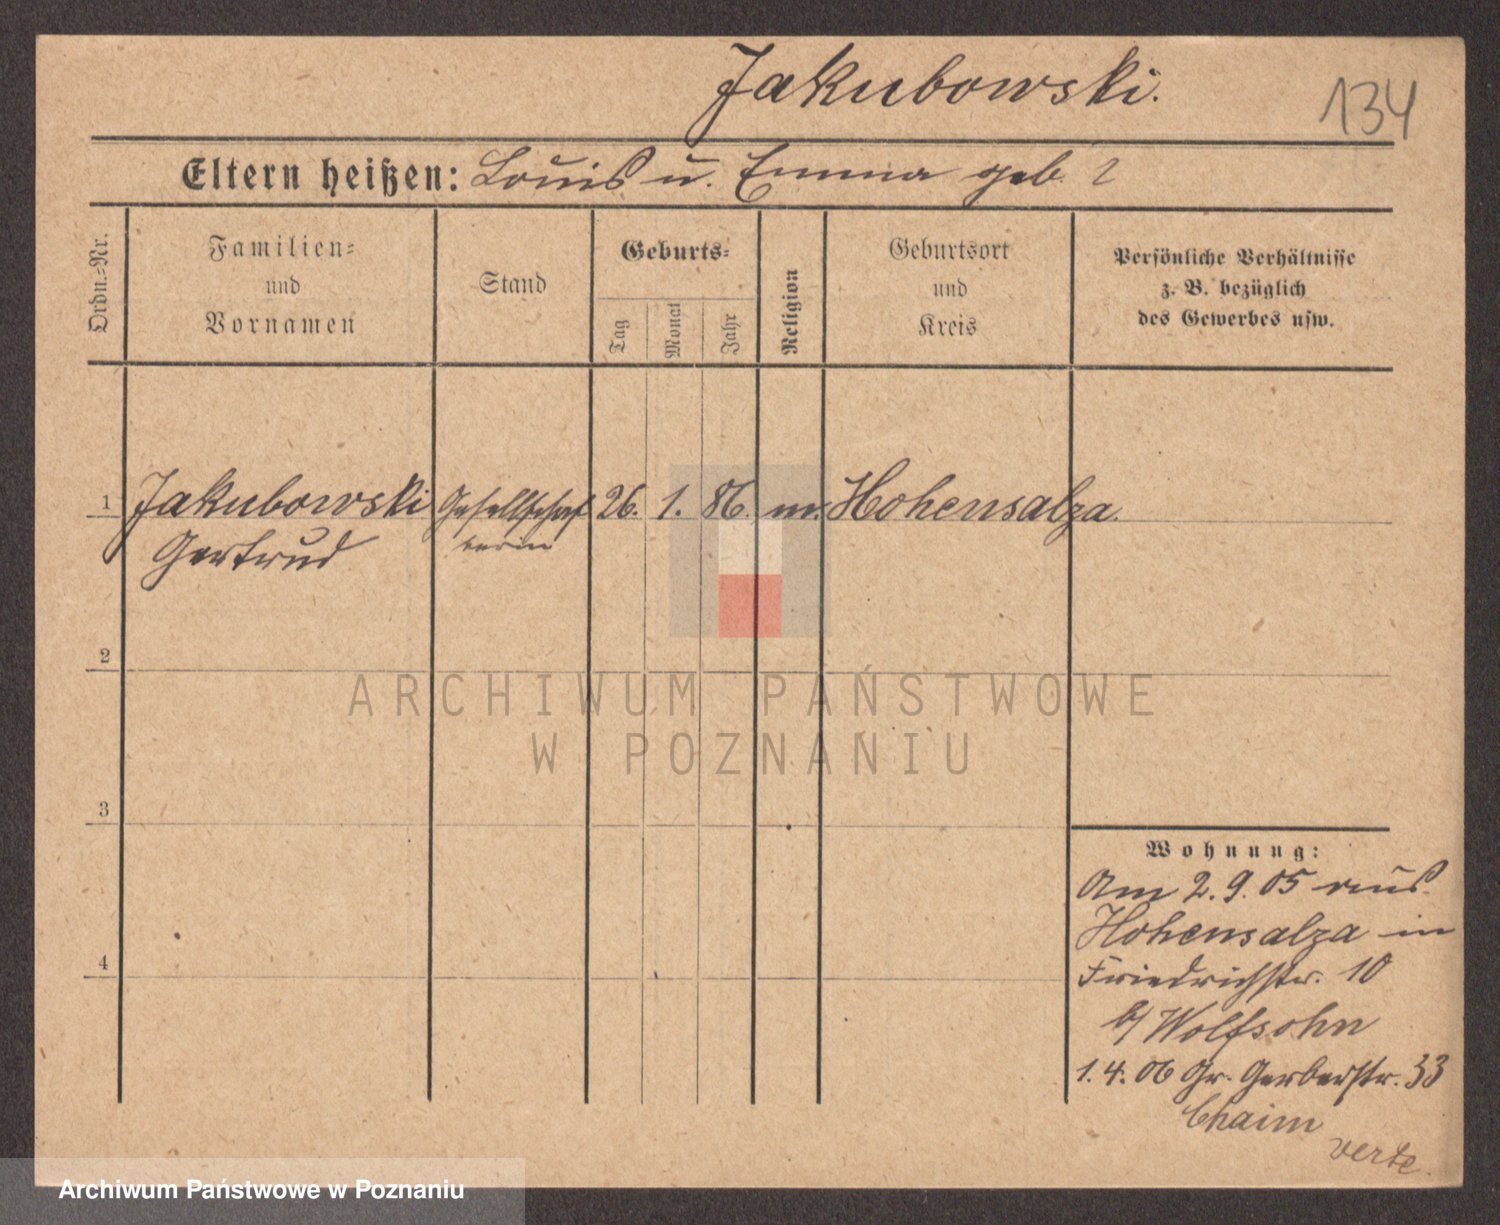 Jakubowski.
134
Eltern heißen: Louis u. Emma geb. ?
Ordn.-Nr.
Familien-
und
Vornamen
Stand
Geburts-
Tag
Monat
Jahr
Religion
Geburtsort
und
Kreis
Persönliche Verhältnisse
z. B. bezüglich
des Gewerbes usw.
1 Jakubowski Gesellschaf 26. 1. 86. m. Hohensalza.
Gertrud terin
2
ARCHIWUM PAŃSTWOWE
W POZNANIU
3
Wohnung:
Am 2.9.05 aus
Hohensalza in
4
Friedrichstr. 10
b/ Wolfsohn
1.4.06 Gr. Gerberstr. 33
Chaim
verte.
Archiwum Państwowe w Poznaniu